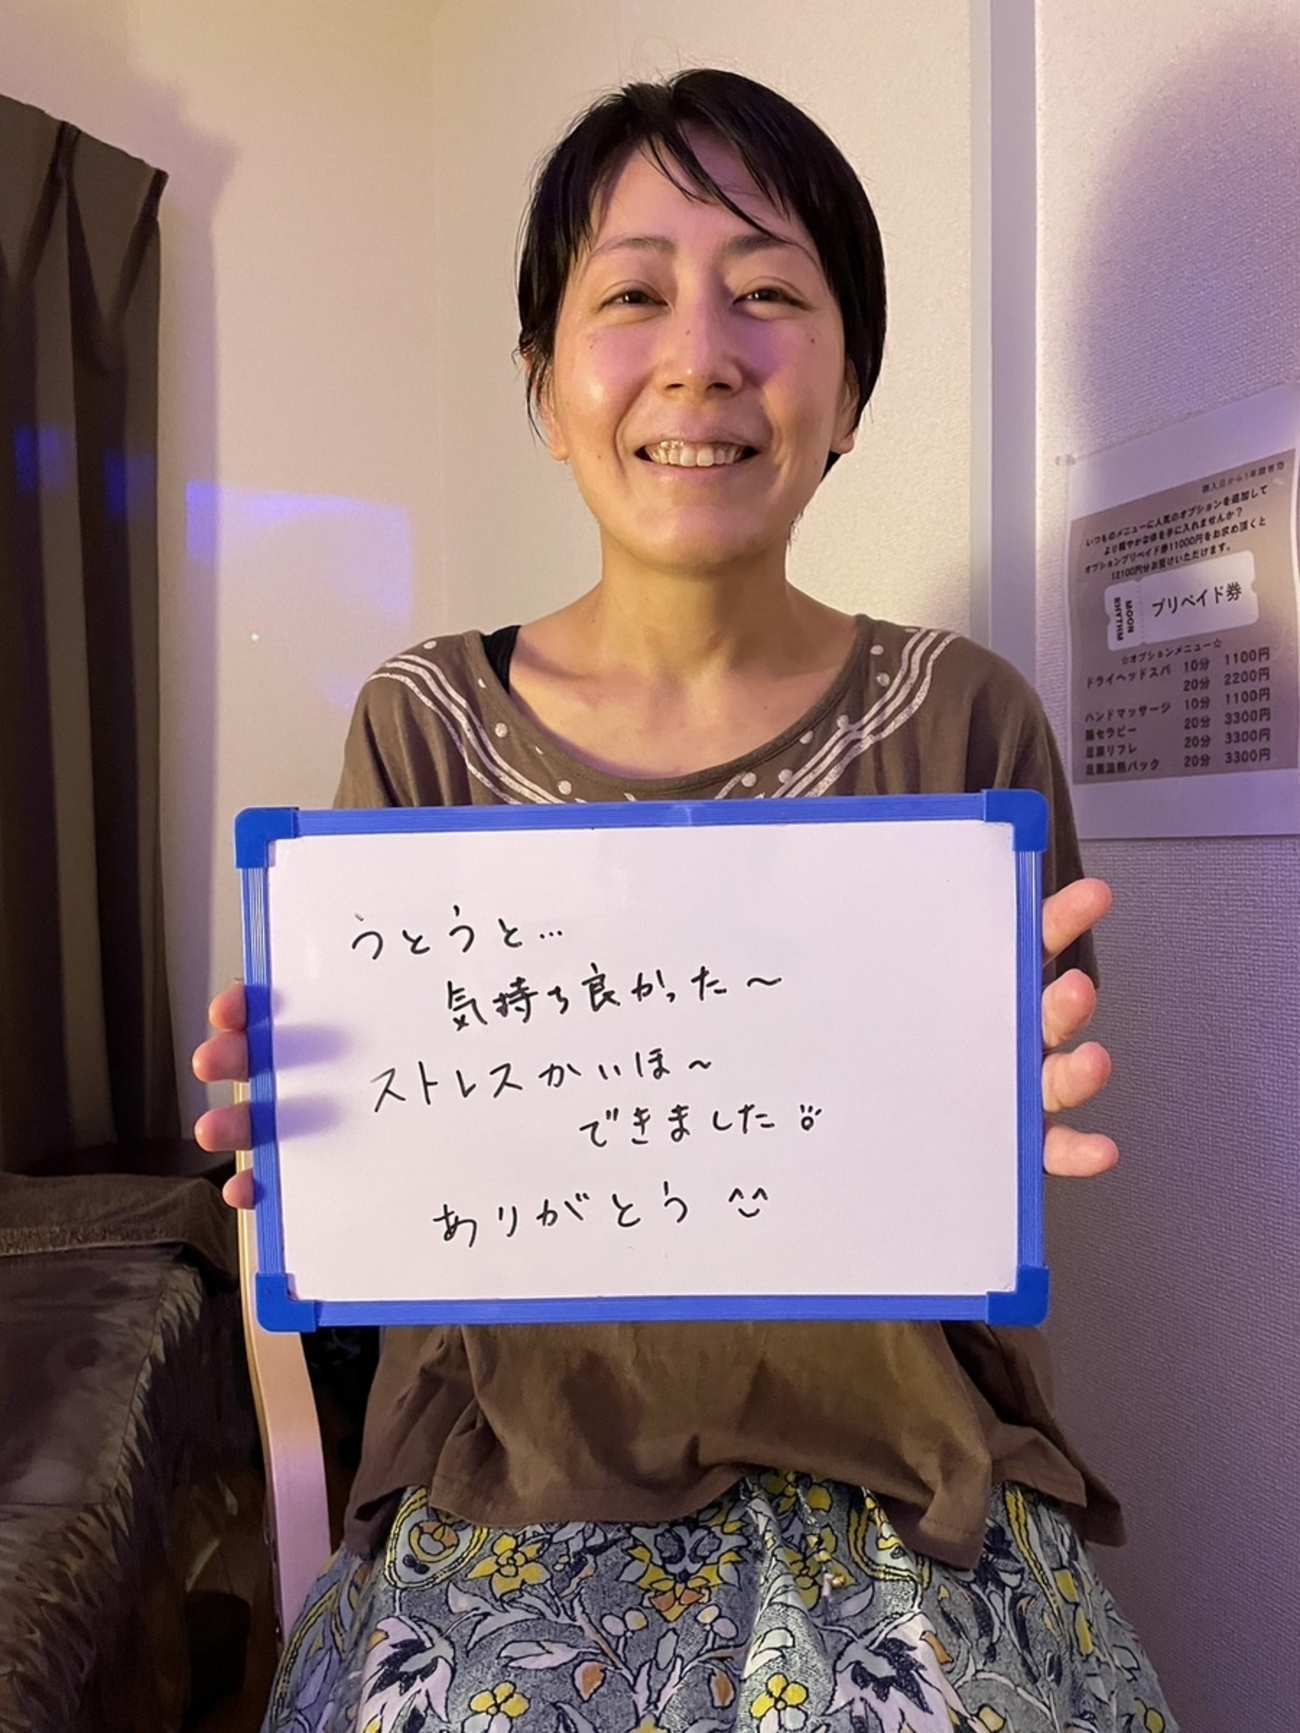 うとうと…
気持ち良かった〜
ストレスかいほ〜
できました
ありがとう ^^
購入日から1年間有効
いつものメニューに人気のオプションを追加して
より軽やかな体を手に入れませんか?
オプションプリペイド券11000円をお求め頂くと
12100円分お受けいただけます。
MOON
RHYTHM
プリペイド券
☆オプションメニュー☆
ドライヘッドスパ 10分 1100円
20分 2200円
ハンドマッサージ 10分 1100円
腸セラピー 20分 3300円
足裏リフレ 20分 3300円
足裏温熱パック 20分 3300円